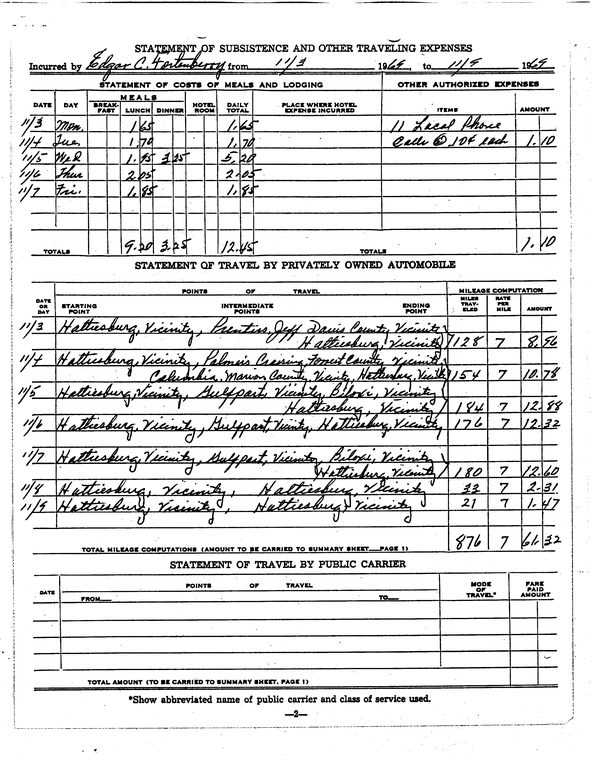 STATEMENT OF SUBSISTENCE AND OTHER TRAVELING EXPENSES
Incurred by Edgar C. Fortenberry from 11/3 1969 to 11/9 1969
STATEMENT OF COSTS OF MEALS AND LODGING OTHER AUTHORIZED EXPENSES
DATE DAY MEALS BREAK-FAST LUNCH DINNER HOTEL ROOM DAILY TOTAL PLACE WHERE HOTEL EXPENSE INCURRED ITEMS AMOUNT
11/3 Mon. 1.65 1.65 11 Local Phone
11/4 Tue. 1.70 1.70 Calls @ 10¢ each 1.10
11/5 Wed 1.95 3.25 5.20
11/6 Thur 2.05 2.05
11/7 Fri. 1.85 1.85
TOTALS 9.20 3.25 12.45 TOTALS 1.10
STATEMENT OF TRAVEL BY PRIVATELY OWNED AUTOMOBILE
POINTS OF TRAVEL MILEAGE COMPUTATION
DATE OR DAY STARTING POINT INTERMEDIATE POINTS ENDING POINT MILES TRAV-ELED RATE PER MILE AMOUNT
11/3 Hattiesburg, Vicinity, Prentiss, Jeff Davis County, Vicinity
Hattiesburg, Vicinity 128 7 8.96
11/4 Hattiesburg, Vicinity, Palmers Crossing, Forrest County, Vicinity,
Columbia, Marion County, Vicinity, Hattiesburg, Vicinity 154 7 10.78
11/5 Hattiesburg, Vicinity, Gulfport, Vicinity, Biloxi, Vicinity
Hattiesburg, Vicinity 184 7 12.88
11/6 Hattiesburg, Vicinity, Gulfport, Vicinity, Hattiesburg, Vicinity 176 7 12.32
11/7 Hattiesburg, Vicinity, Gulfport, Vicinity, Biloxi, Vicinity
Hattiesburg, Vicinity 180 7 12.60
11/8 Hattiesburg, Vicinity, Hattiesburg, Vicinity 33 7 2.31
11/9 Hattiesburg, Vicinity, Hattiesburg, Vicinity 21 7 1.47
TOTAL MILEAGE COMPUTATIONS (AMOUNT TO BE CARRIED TO SUMMARY SHEET—PAGE 1) 876 7 61.32
STATEMENT OF TRAVEL BY PUBLIC CARRIER
DATE POINTS OF TRAVEL MODE OF TRAVEL* FARE PAID AMOUNT
FROM— TO—
TOTAL AMOUNT (TO BE CARRIED TO SUMMARY SHEET, PAGE 1)
*Show abbreviated name of public carrier and class of service used.
—2—